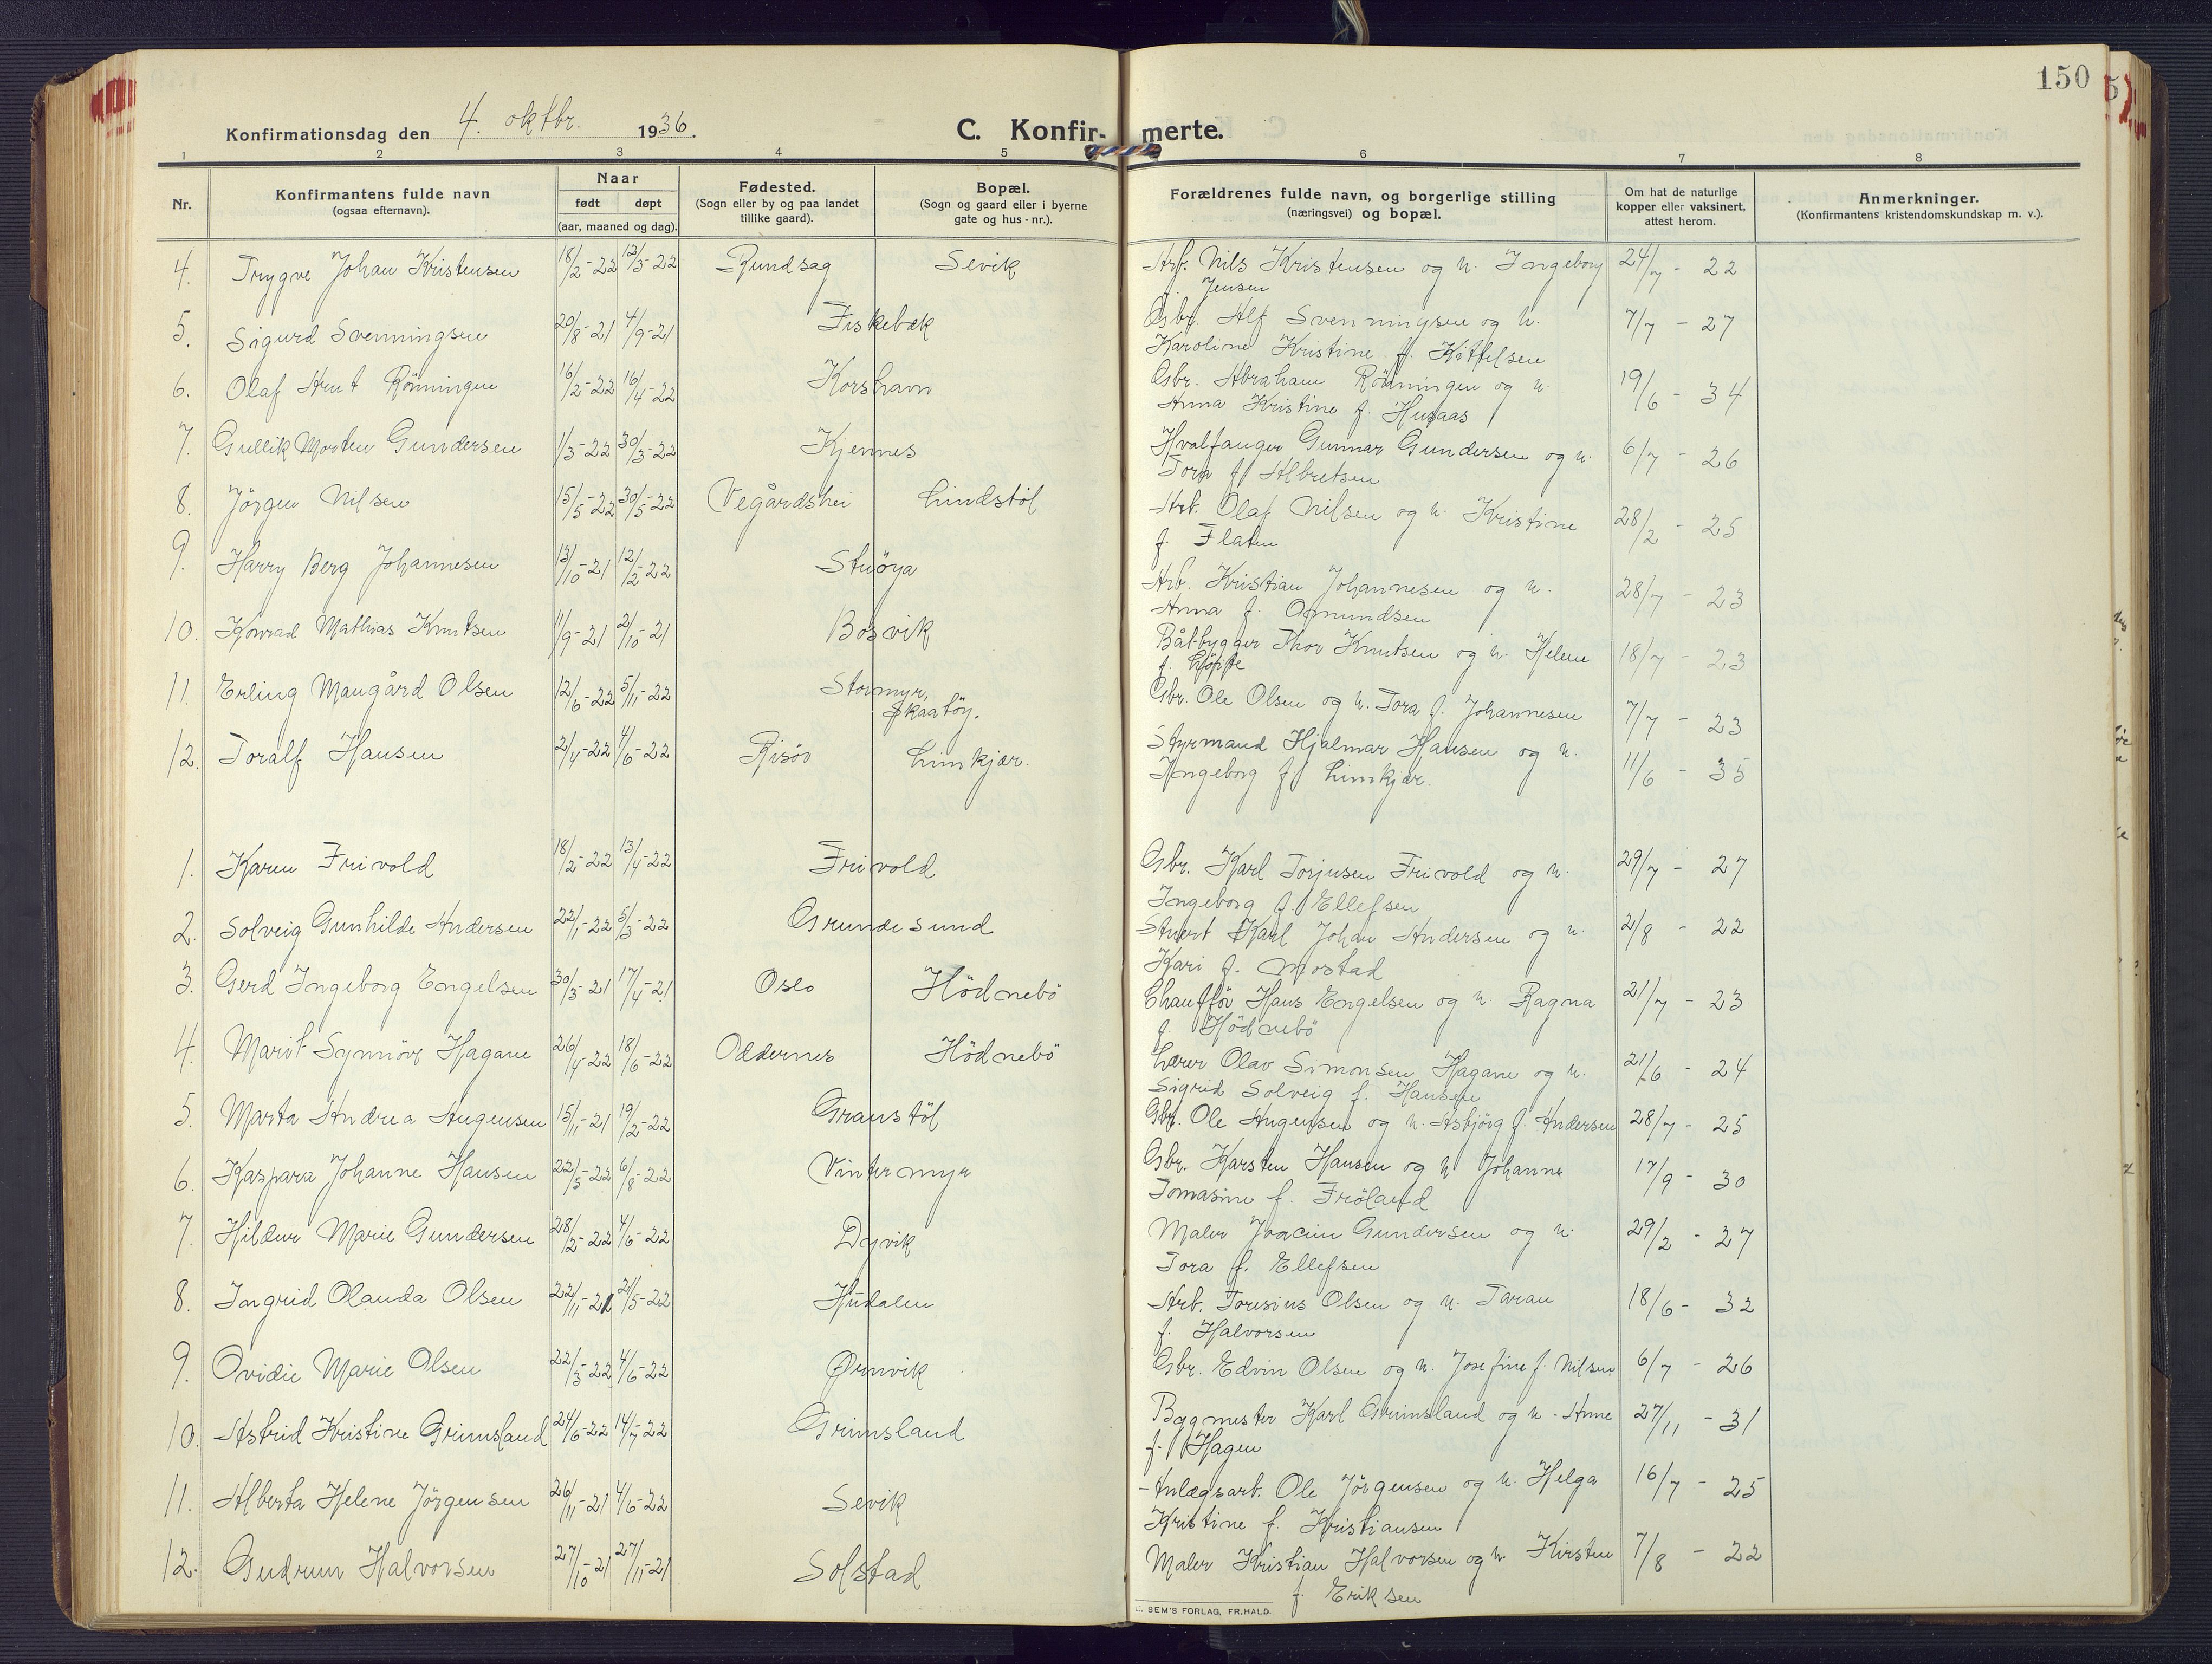 150
Konfirmationsdag den 4. oktbr. 1936.
C. Konfir- merte.
1 2 3 4 5 6 7 8
Nr.
Konfirmantens fulde navn
(ogsaa efternavn).
Naar
født døpt
(aar, maaned og dag).
Fødested.
(Sogn eller by og paa landet
tillike gaard).
Bopæl.
(Sogn og gaard eller i byerne
gate og hus-nr.).
Forældrenes fulde navn, og borgerlige stilling
(næringsvei) og bopæl.
Om hat de naturlige
kopper eller vaksinert,
attest herom.
Anmerkninger.
(Konfirmantens kristendomskundskap m. v.).
4. Trygve Johan Kristensen 18/2-22 12/3-22 Rundsag Sevik Arb. Nils Kristensen og h. Ingeborg 24/7 - 22
Jensen
5. Sigurd Svenningsen 20/8-21 4/9-21 Fiskebæk Gbr. Alf Svenningsen og h. 7/7 - 27
Karoline Kristine f. Kittelsen
6. Olaf Arnt Rönningen 16/2-22 16/4-22 Korshavn Gbr. Abraham Rönningen og h. 19/6 - 34
Anna Kristine f. Husaas
7. Gullik Morten Gundersen 1/3-22 30/3-22 Kjennes Hvalfanger Gunnar Gundersen og h. 6/7 - 26
Tora f. Albretsen
8. Jörgen Nilsen 15/5-22 30/5-22 Vegårdshei Lindstöl Arb. Olaf Nilsen og h. Kristine 28/2 - 25
f. Flaten
9. Harry Berg Johannesen 13/10-21 12/2-22 Stuöya Arb. Kristian Johannesen og h. 28/7 - 23
Anna f. Omundsen
10. Konrad Mathias Knutsen 11/9-21 2/10-21 Bosvik Båtbygger Thor Knutsen og h. Helene 18/7 - 23
f. Löpte
11. Erling Maugård Olsen 12/6-22 5/11-22 Stormyr, Gbr. Ole Olsen og h. Tora f. Johannesen 7/7 - 23
Skaatöy.
12. Toralf Hansen 2/4-22 4/6-22 Risör Limkjær. Styrmand Hjalmar Hansen og h. 11/6 - 35
Ingeborg f. Limkjær.
1. Karen Frivold 18/2-22 13/4-22 Frivold Gbr. Karl Torjusen Frivold og h. 29/7 - 27
Ingeborg f. Ellefsen
2. Solveig Gunhilde Andersen 22/1-22 5/3-22 Grundesund Stuert Karl Johan Andersen og h. 2/8 - 22
Kari f. Mostad
3. Gerd Ingeborg Engelsen 30/3-21 17/4-21 Oslo Hödnebö Chauffør Hans Engelsen og h. Ragna 21/7 - 23
f. Hödnebö
4. Marit Synnöve Hagane 26/4-22 18/6-22 Oddernes Hödnebö Lærer Olav Simonsen Hagane og h. 21/6 - 24
Sigrid Solveig f. Hansen
5. Marta Andrea Augensen 15/11-21 19/2-22 Granstöl Gbr. Ole Augensen og h. Asbjörg f. Andersen 28/7 - 25
6. Kaspara Johanne Hansen 22/5-22 6/8-22 Vintermyr Gbr. Karsten Hansen og h Johanne 17/9 - 30
Tomasine f. Fröland
7. Hildur Marie Gundersen 28/2-22 4/6-22 Dyvik Maler Joacim Gundersen og h. 29/2 - 27
Tora f. Ellefsen
8. Ingrid Olanda Olsen 22/11-21 21/5-22 Hudalen Arb. Toresius Olsen og h. Taran 18/6 - 32
f. Halvorsen
9. Ovidie Marie Olsen 22/3-22 4/6-22 Ørnvik Gbr. Edvin Olsen og h. Josefine f. Nilsen 6/7 - 26
10. Astrid Kristine Grimsland 24/6-22 14/7-22 Grimsland Byggmester Karl Grimsland og h. Anne 27/11 - 31
f. Hagen
11. Alberta Helene Jörgensen 26/11-21 4/6-22 Sevik Anlægsarb. Ole Jörgensen og h. Helga 16/7 - 25
Kristine f. Kristiansen
12. Gudrun Halvorsen 27/10-21 27/11-21 Solstad Maler Kristian Halvorsen og h. Kirsten 7/8 - 22
f. Eriksen
SEM'S FORLAG, FR.HALD.